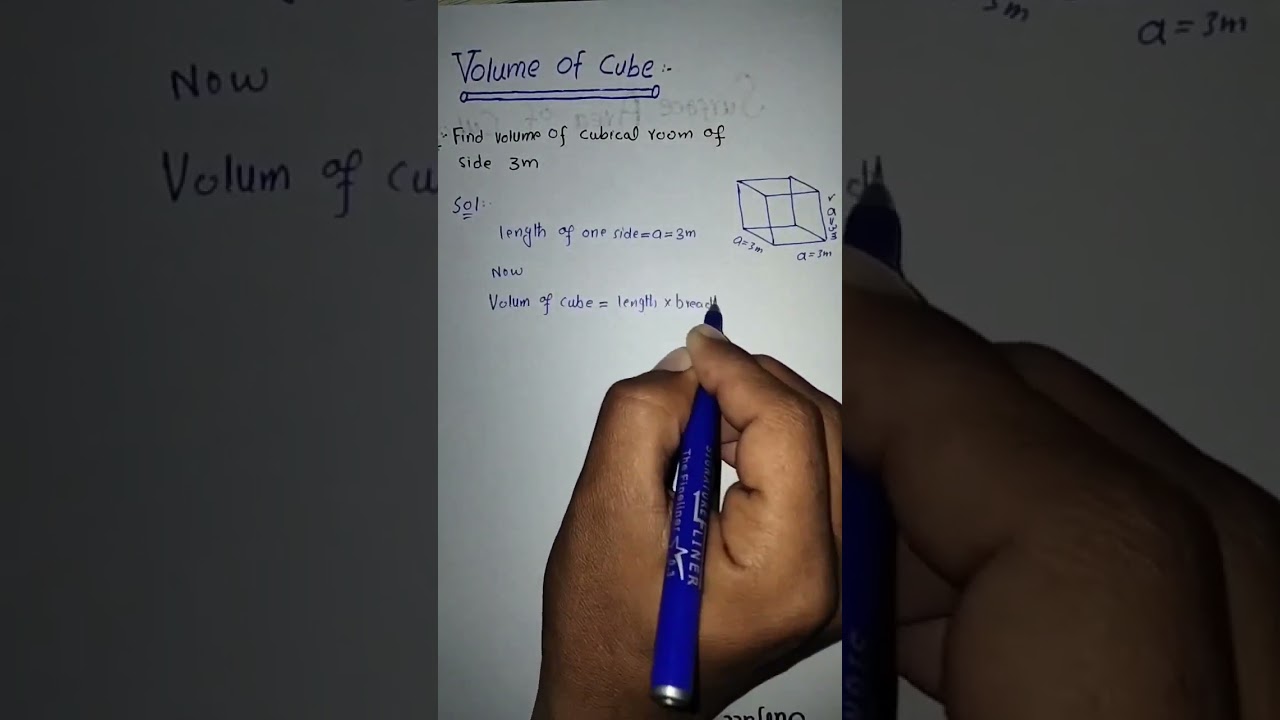 Volume of Cube:-
:- Find volume of cubical room of
side 3m
Sol:-
length of one side = a = 3m
a = 3m
a = 3m
a = 3m
Now
Volum of cube = length × bread
SIGNATURE FLINER
The Fineliner
3m
a = 3m
Now
Volum of cu